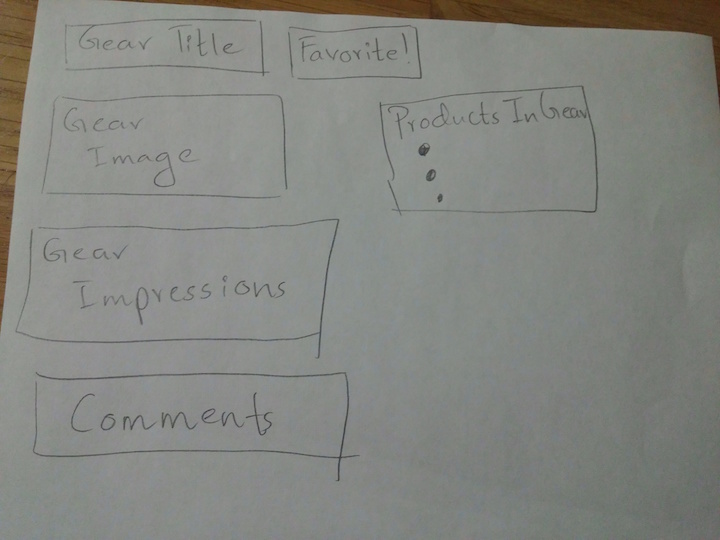 Gear Title
Favorite!
Gear
Image
Products In Gear
Gear
Impressions
Comments